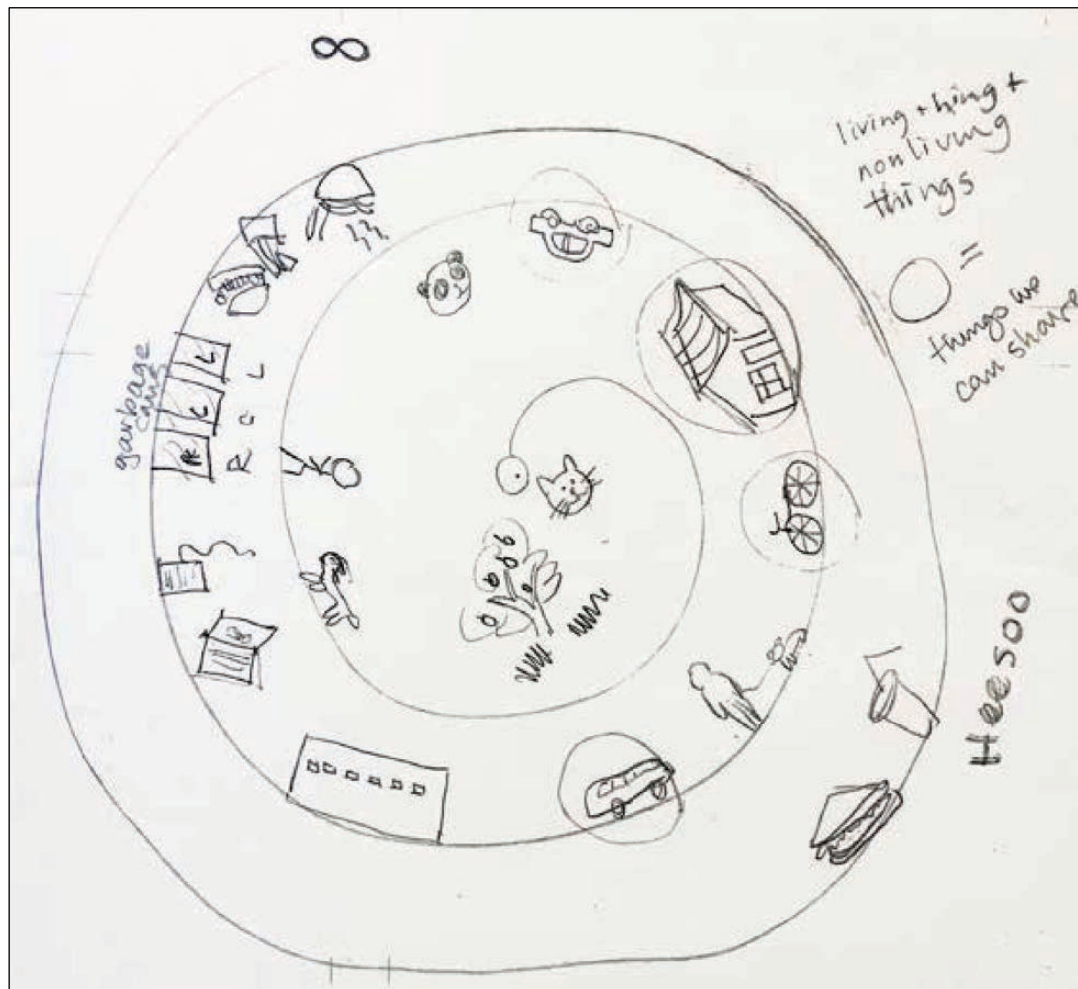 8
living thing +
non living
things
=
things we
can share
garbage
cans
L
C
R
L
C
R
Heesoo